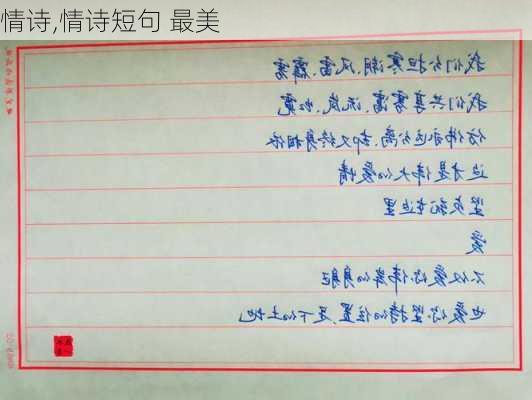 情诗,情诗短句 最美
我们分担寒潮、风雷、霹雳
我们共享雾霭、流岚、虹霓
仿佛永远分离,却又终身相依
这才是伟大的爱情
坚贞就在这里
爱
不仅爱你伟岸的身躯
也爱你坚持的位置,足下的土地